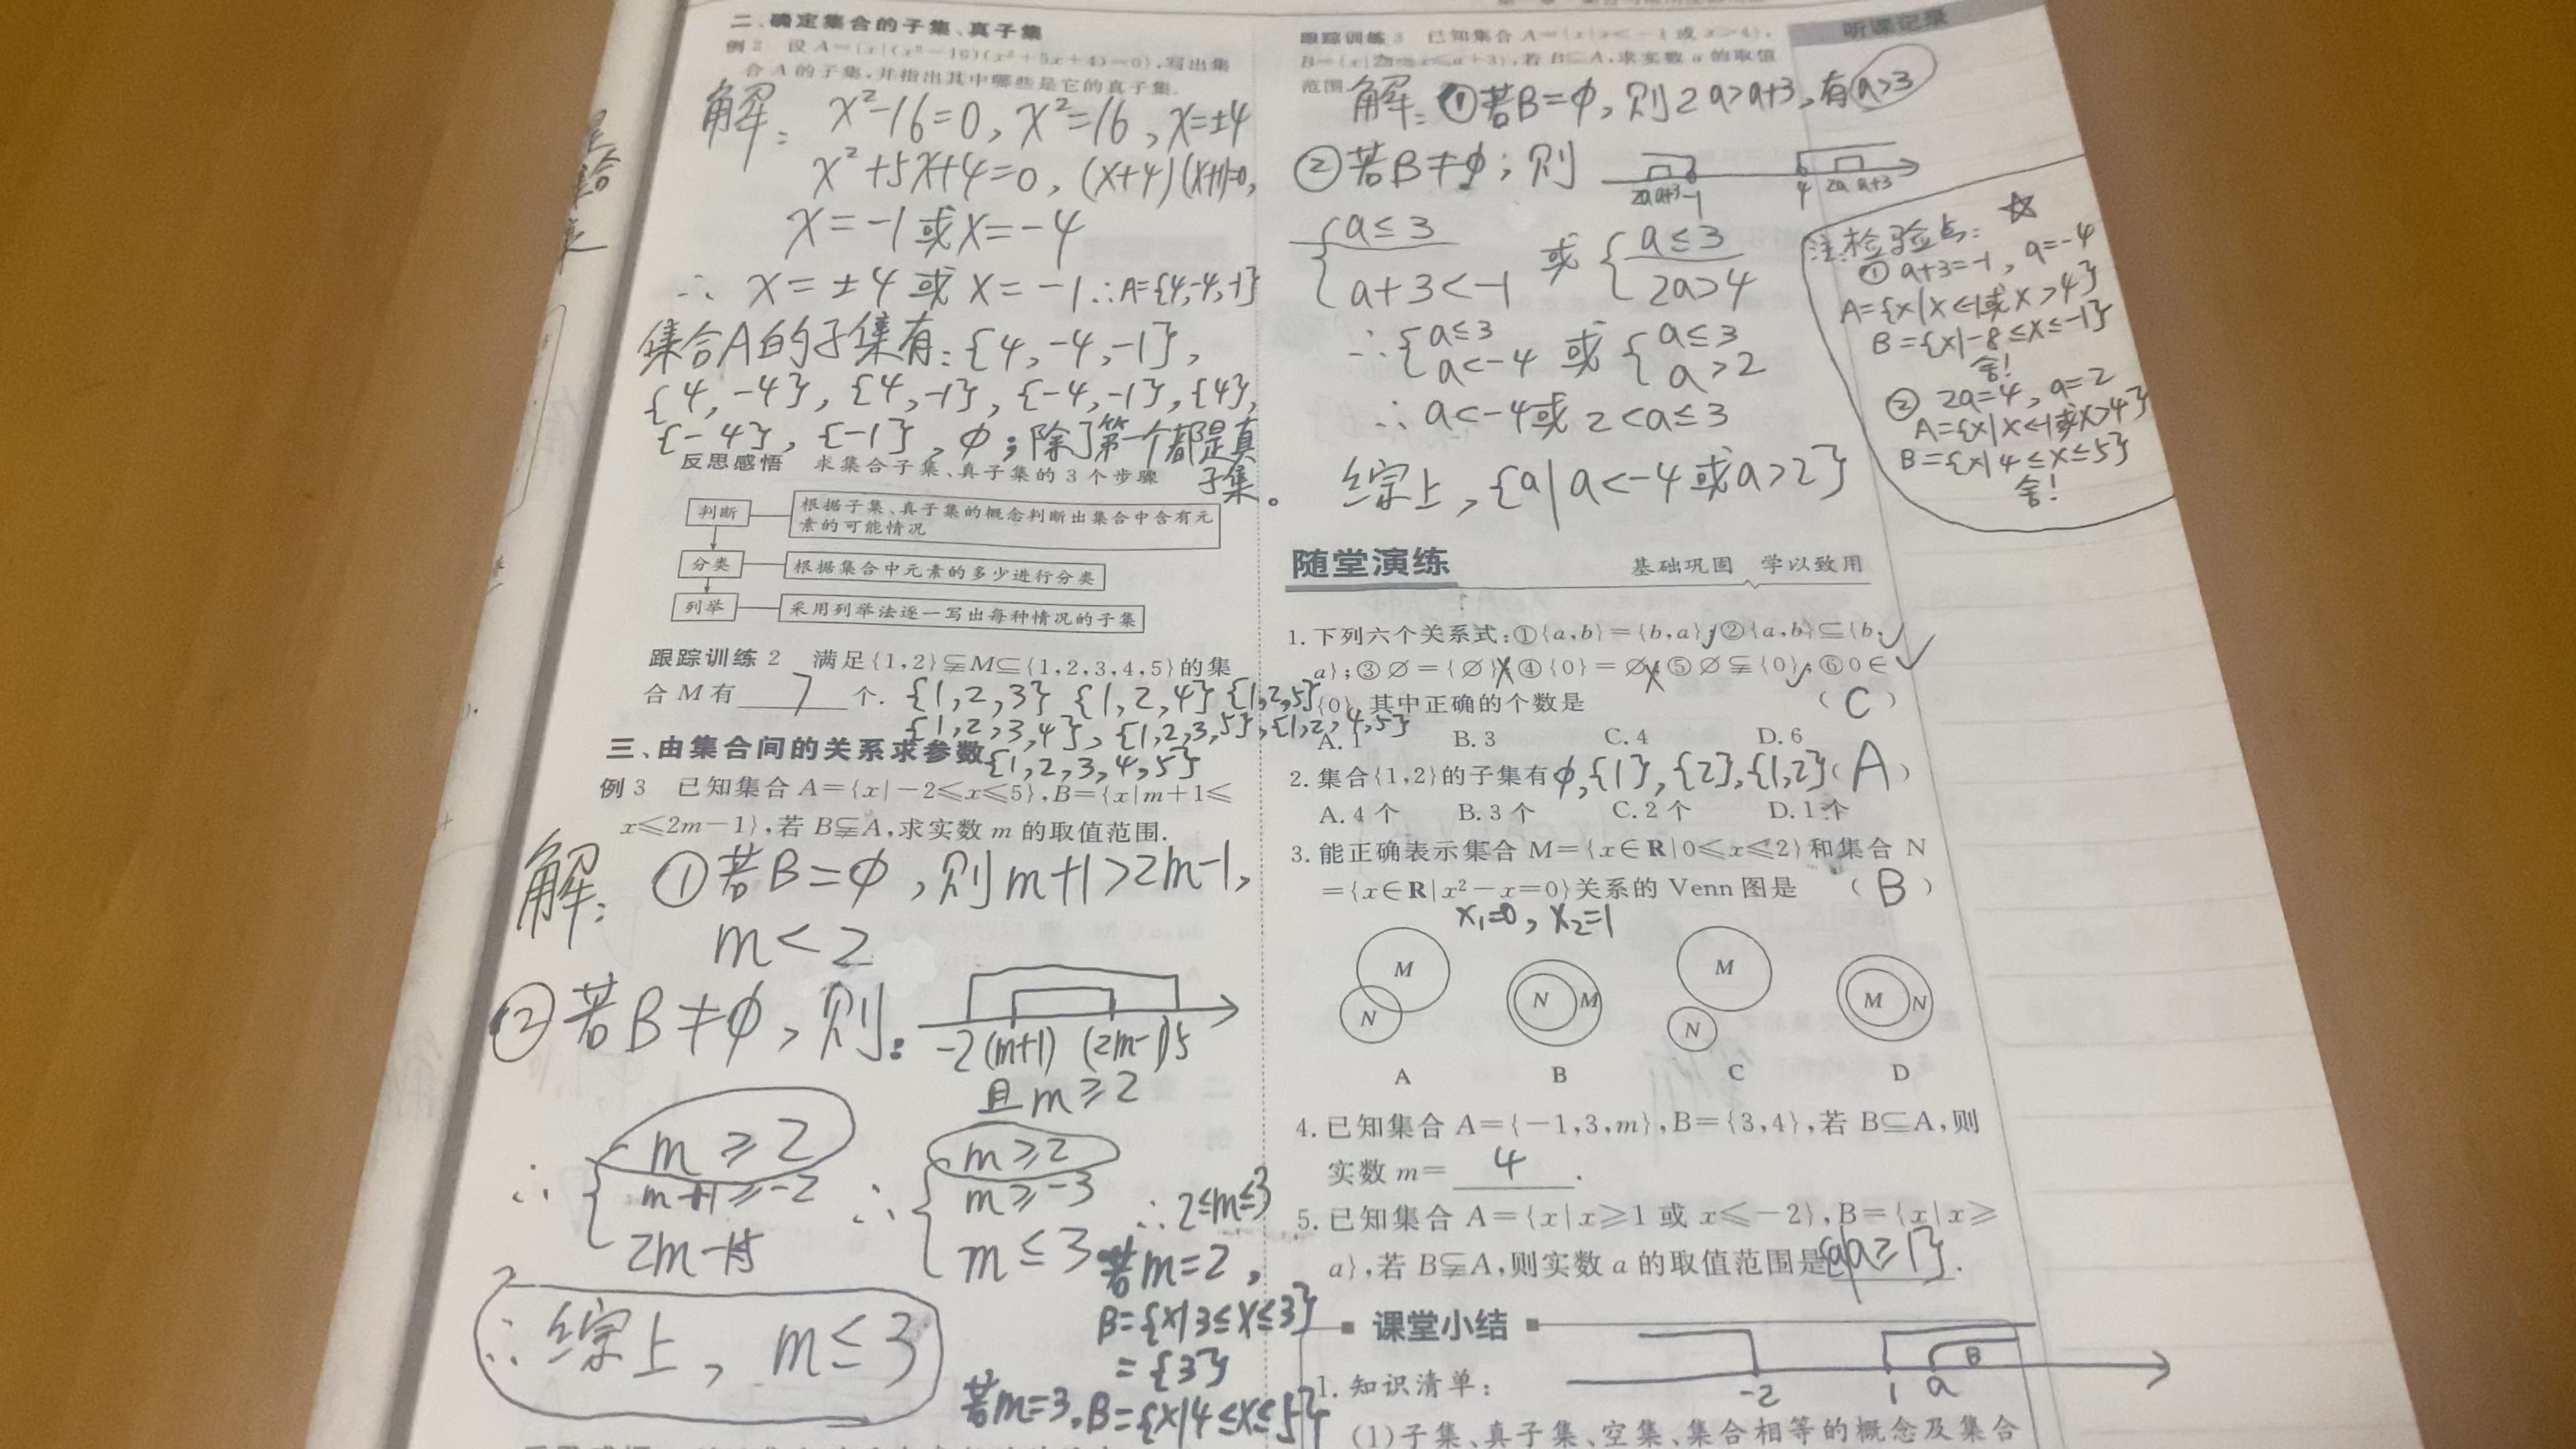 二、确定集合的子集、真子集
例 2 设 A={x|(x²-16)(x²+5x+4)=0},写出集
合 A 的子集,并指出其中哪些是它的真子集.
解: x²-16=0, x²=16, x=±4
x²+5x+4=0, (x+4)(x+1)=0,
x=-1或x=-4
∴ x=±4或x=-1 ∴A={4,-4,-1}
集合A的子集有:{4,-4,-1},
{4,-4},{4,-1},{-4,-1},{4},
{-4},{-1},ϕ;除了第一个都是真
子集。
反思感悟 求集合子集、真子集的 3 个步骤
判断
根据子集、真子集的概念判断出集合中含有元
素的可能情况
分类
根据集合中元素的多少进行分类
列举
采用列举法逐一写出每种情况的子集
跟踪训练 2 满足{1,2}⫋M⊆{1,2,3,4,5}的集
合 M 有 7 个.
{1,2,3} {1,2,4} {1,2,5}
{1,2,3,4},{1,2,3,5},{1,2,4,5}
{1,2,3,4,5}
三、由集合间的关系求参数
例 3 已知集合 A={x|-2≤x≤5},B={x|m+1≤
x≤2m-1},若 B⫋A,求实数 m 的取值范围.
解: ①若B=ϕ,则m+1>2m-1,
m<2
②若B≠ϕ,则:
-2 (m+1) (2m-1) 5
且m≥2
∴ { m≥2 ∴ { m≥2
m+1≥-2 m≥-3 ∴2≤m≤3
2m-1≤5 m≤3 若m=2,
B={x|3≤x≤3}
={3}
∴综上, m≤3
若m=3,B={x|4≤x≤5}
听课记录
跟踪训练 3 已知集合 A={x|x<-1 或 x>4},
B={x|2a≤x≤a+3},若 B⊆A,求实数 a 的取值
范围.
解: ①若B=ϕ,则2a>a+3,有a>3
②若B≠ϕ;则
2a a+3 -1 4 2a a+3
{ a≤3 或 { a≤3
a+3<-1 2a>4
∴{ a≤3 或 { a≤3
a<-4 a>2
∴ a<-4或2<a≤3
综上,{a|a<-4或a>2}
注:检验点: ☆
① a+3=-1, a=-4
A={x|x<-1或x>4}
B={x|-8≤x≤-1}
舍!
② 2a=4, a=2
A={x|x<-1或x>4}
B={x|4≤x≤5}
舍!
随堂演练 基础巩固 学以致用
1. 下列六个关系式:①{a,b}={b,a};②{a,b}⊆{b,
a};③∅={∅};④{0}=∅;⑤∅⫋{0};⑥0∈
{0}.其中正确的个数是 ( C )
A. 1 B. 3 C. 4 D. 6
2. 集合{1,2}的子集有 ϕ,{1},{2},{1,2} ( A )
A. 4 个 B. 3 个 C. 2 个 D. 1 个
3. 能正确表示集合 M={x∈R|0≤x≤2}和集合 N
={x∈R|x²-x=0}关系的 Venn 图是 ( B )
x₁=0, x₂=1
M N
N M
M N
M N
A B C D
4. 已知集合 A={-1,3,m},B={3,4},若 B⊆A,则
实数 m= 4 .
5. 已知集合 A={x|x≥1 或 x≤-2},B={x|x≥
a},若 B⫋A,则实数 a 的取值范围是 {a|a≥1}.
课堂小结
B
-2 1 a
1. 知识清单:
(1)子集、真子集、空集、集合相等的概念及集合